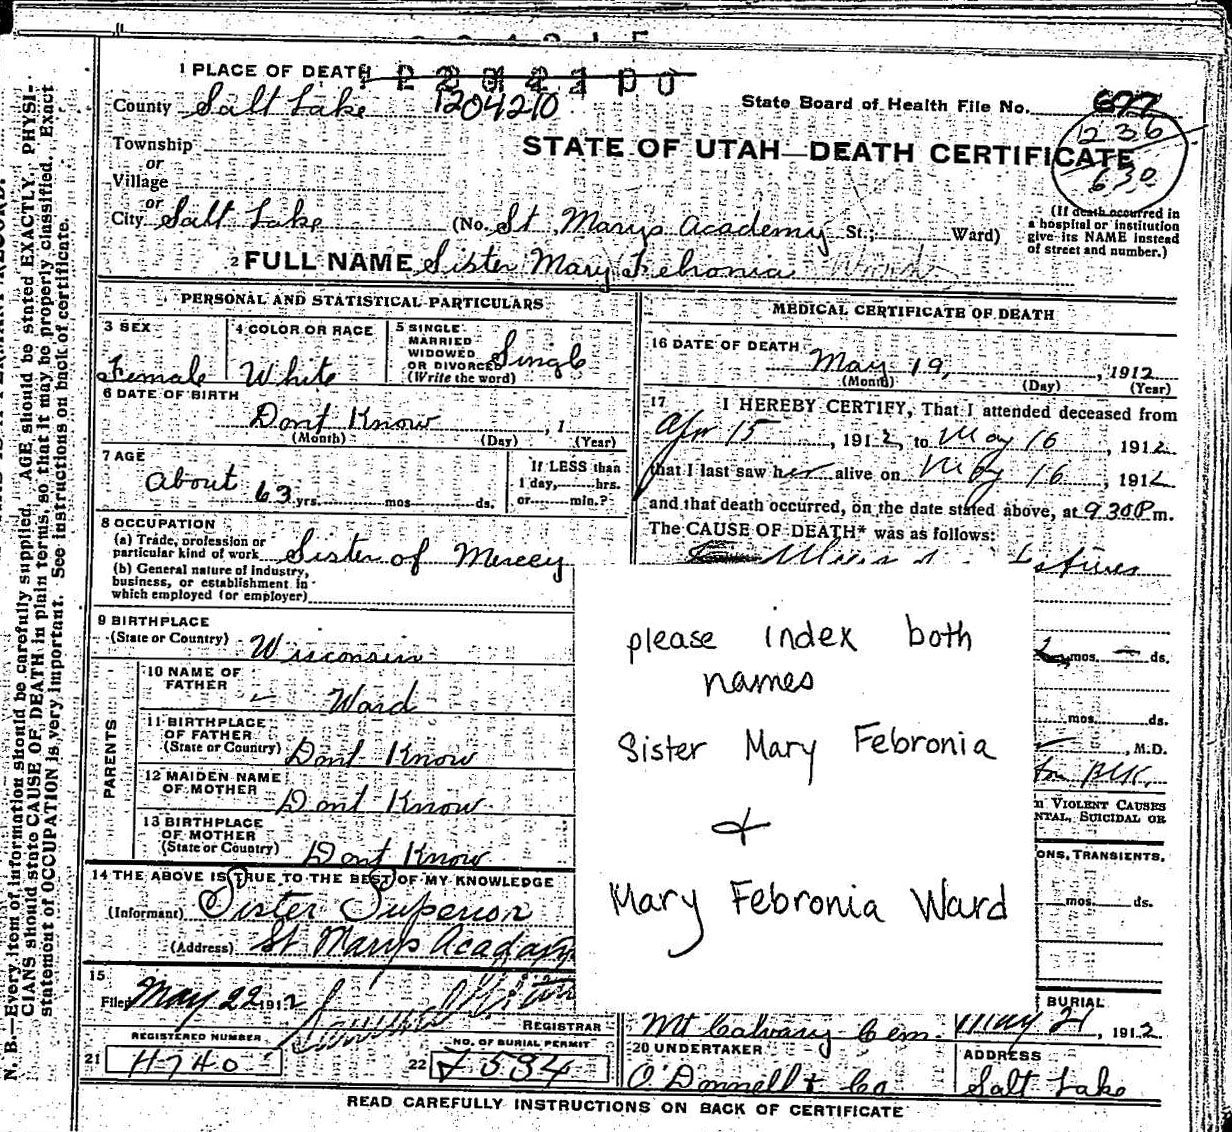 1 PLACE OF DEATH
1204210
County Salt Lake
State Board of Health File No. 677
236
630
Township
STATE OF UTAH—DEATH CERTIFICATE
or
Village
or
City Salt Lake (No. St Marys Academy St.; Ward)
(If death occurred in
a hospital or institution
give its NAME instead
of street and number.)
2 FULL NAME Sister Mary Febronia Ward
PERSONAL AND STATISTICAL PARTICULARS
3 SEX
Female
4 COLOR OR RACE
White
5 SINGLE
MARRIED
WIDOWED
OR DIVORCED
(Write the word)
Single
6 DATE OF BIRTH
Dont Know , 1
(Month) (Day) (Year)
7 AGE
About 63 yrs. mos. ds.
If LESS than
1 day, hrs.
or min.?
8 OCCUPATION
(a) Trade, profession or
particular kind of work Sister of Mercey
(b) General nature of industry,
business, or establishment in
which employed (or employer)
9 BIRTHPLACE
(State or Country) Wisconsin
PARENTS
10 NAME OF
FATHER Ward
11 BIRTHPLACE
OF FATHER
(State or Country) Dont Know
12 MAIDEN NAME
OF MOTHER Dont Know
13 BIRTHPLACE
OF MOTHER
(State or Country) Dont Know
14 THE ABOVE IS TRUE TO THE BEST OF MY KNOWLEDGE
(Informant) Sister Superior
(Address) St Marys Acadamy
15
Filed May 22 1912
REGISTRAR
REGISTERED NUMBER
21 H740
NO. OF BURIAL PERMIT
22 7534
MEDICAL CERTIFICATE OF DEATH
16 DATE OF DEATH
May 19, , 1912
(Month) (Day) (Year)
17 I HEREBY CERTIFY, That I attended deceased from
Apr 15 , 1912, to May 16 , 1912
that I last saw her alive on May 16 , 1912
and that death occurred, on the date stated above, at 930 P m.
The CAUSE OF DEATH* was as follows:
mos. — ds.
mos. ds.
, M.D.
VIOLENT CAUSES
SUICIDAL OR
TRANSIENTS,
mos. ds.
BURIAL
Mt Calvary Cem. May 21 , 1912
20 UNDERTAKER
O'Donnell & Co
ADDRESS
Salt Lake
READ CAREFULLY INSTRUCTIONS ON BACK OF CERTIFICATE
please index both
names
Sister Mary Febronia
&
Mary Febronia Ward
N. B.—Every item of information should be carefully supplied. AGE should be stated EXACTLY. PHYSI-
CIANS should state CAUSE OF DEATH in plain terms, so that it may be properly classified. Exact
statement of OCCUPATION is very important. See instructions on back of certificate.